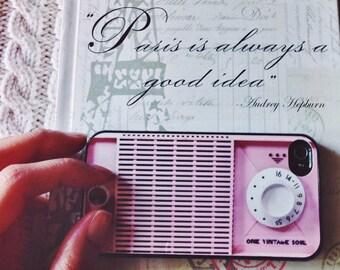 "Paris is always a
good idea"
-Audrey Hepburn
16 14 11
9 8 7 6 5½
ONE VINTAGE SOUL